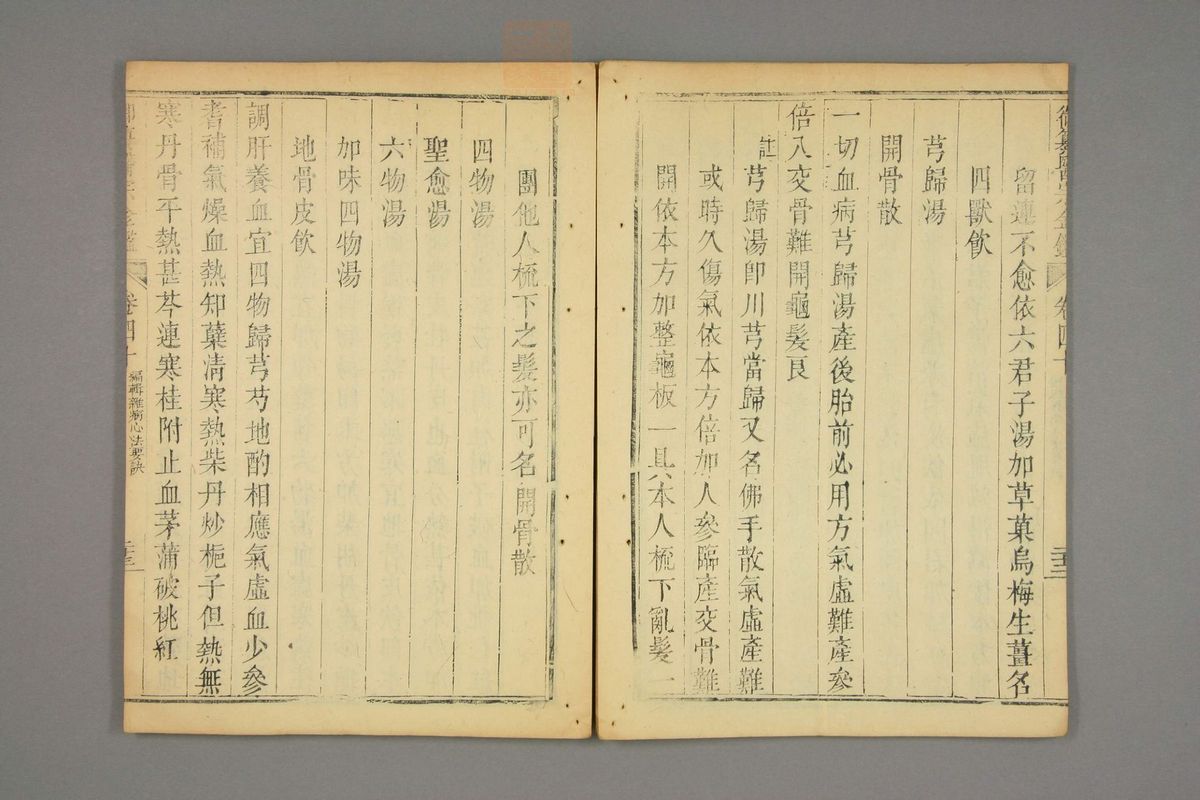 卷四十
二十二
留連不愈依六君子湯加草菓烏梅生薑名
四獸飲
芎歸湯
開骨散
一切血病芎歸湯產後胎前必用方氣虛難產參
倍入交骨難開龜髮良
註芎歸湯卽川芎當歸又名佛手散氣虛產難
或時久傷氣依本方倍加人參臨產交骨難
開依本方加整龜板一具本人梳下亂髮一
團他人梳下之髮亦可名開骨散
四物湯
聖愈湯
六物湯
加味四物湯
地骨皮飮
調肝養血宜四物歸芎芍地酌相應氣虛血少參
耆補氣燥血熱知蘗清寒熱柴丹炒梔子但熱無
寒丹骨平熱甚芩連寒桂附止血茅蒲破桃紅
卷四十
編輯雜病心法要訣